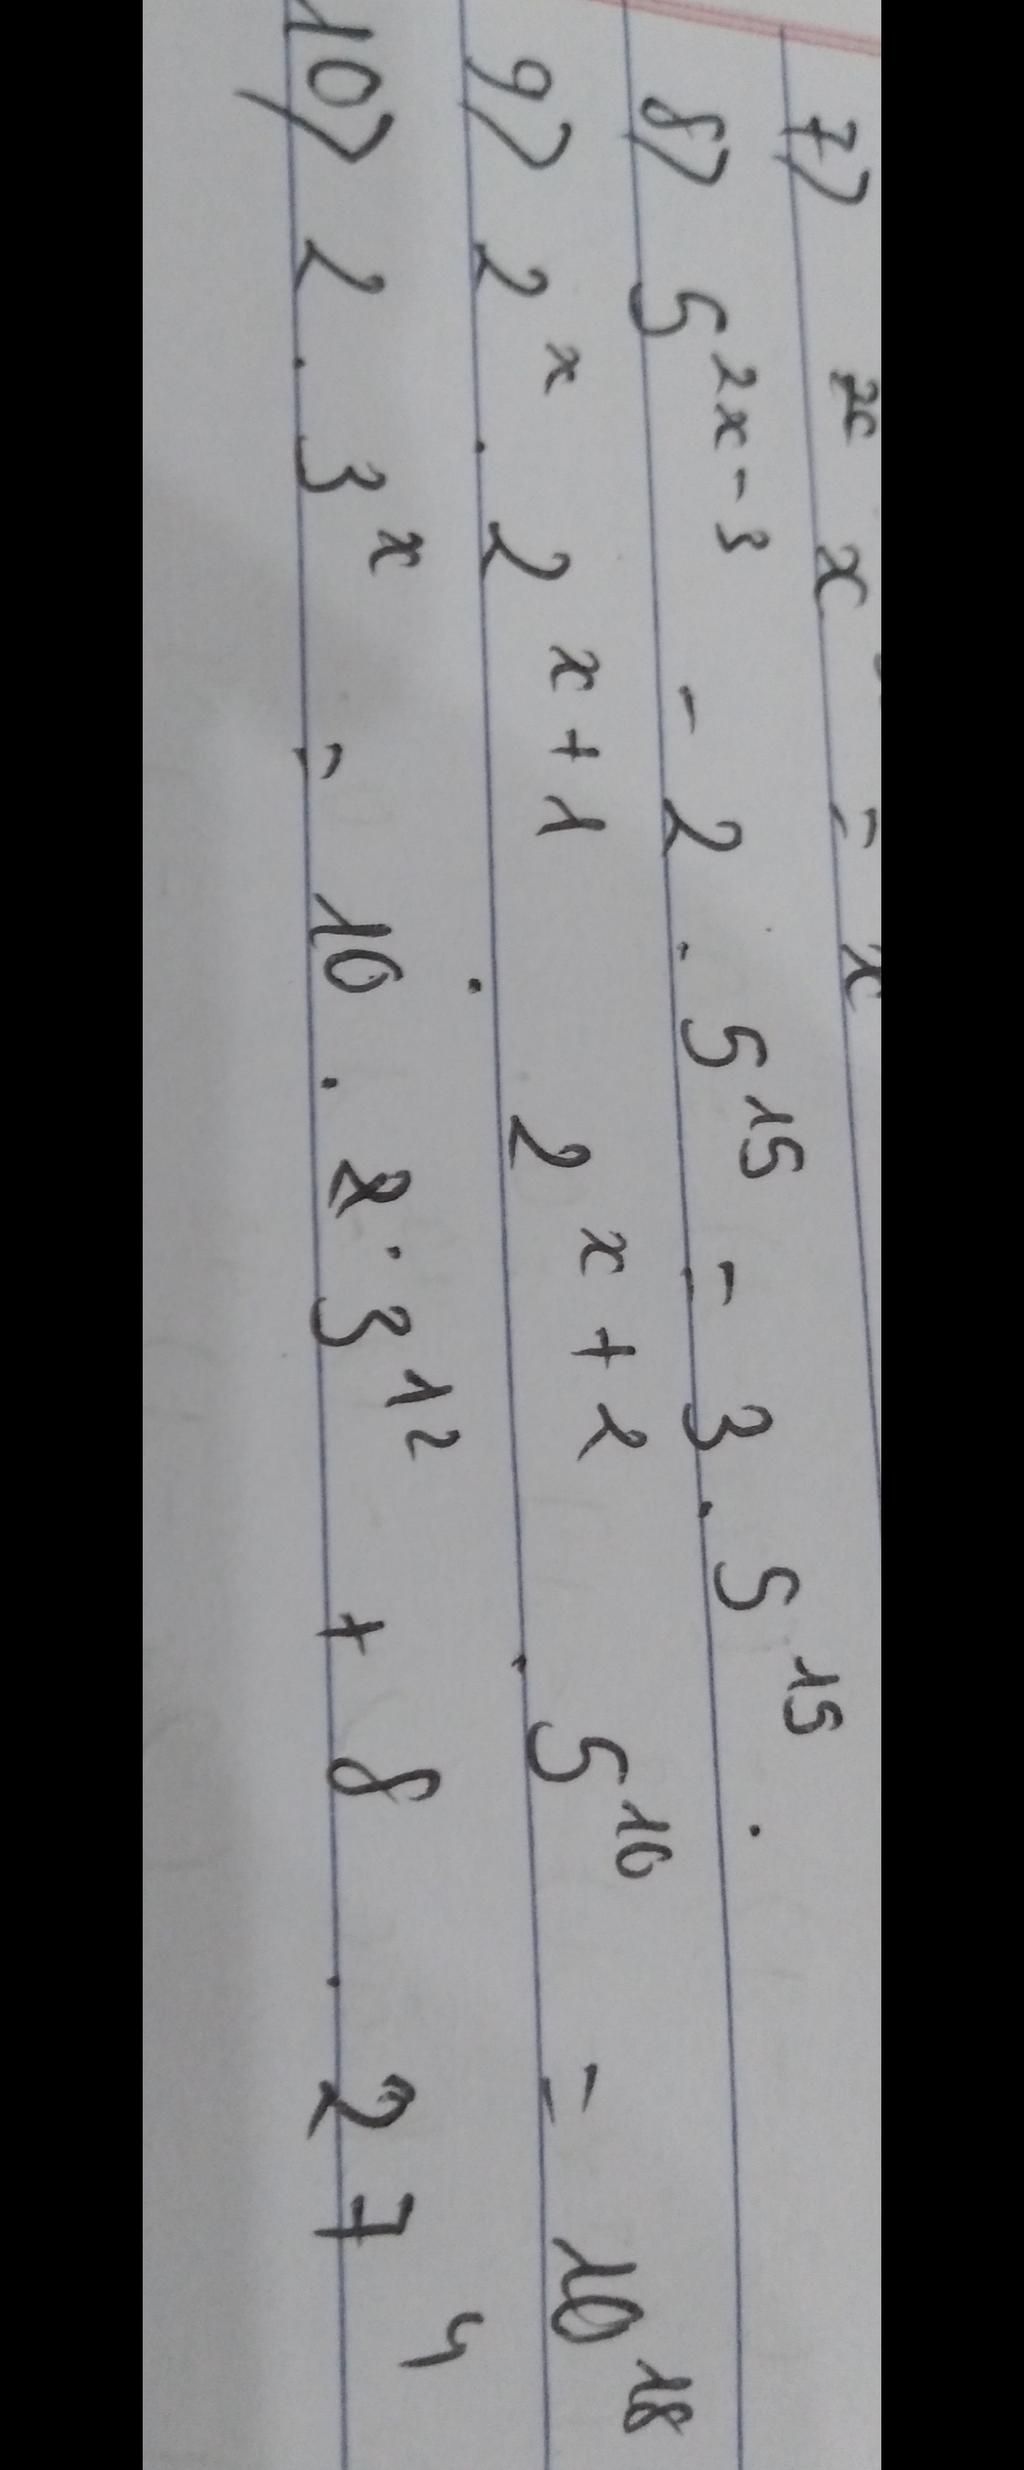 7) x = x
8) 5^{2x-3} - 2 . 5^{15} = 3 . 5^{15} .
9) 2^{x} . 2^{x+1} . 2^{x+2} . 5^{10} = 10^{18}
10) 2 . 3^{x} = 10 . 3^{12} + 8 . 27^{4}